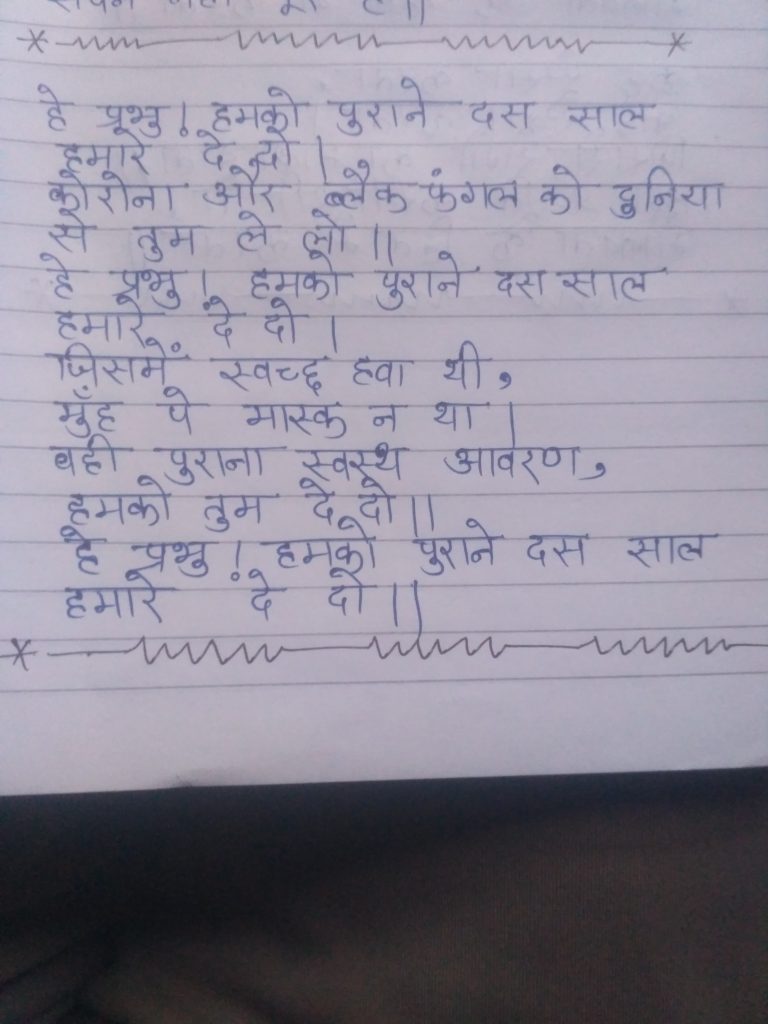 हे प्रभु! हमको पुराने दस साल
हमारे दे दो|
कोरोना और ब्लैक फुंगल को दुनिया
से तुम ले लो||
हे प्रभु! हमको पुराने दस साल
हमारे दे दो|
जिसमें स्वच्छ हवा थी,
मुँह पे मास्क न था|
वही पुराना स्वस्थ आवरण,
हमको तुम दे दो||
हे प्रभु! हमको पुराने दस साल
हमारे दे दो||